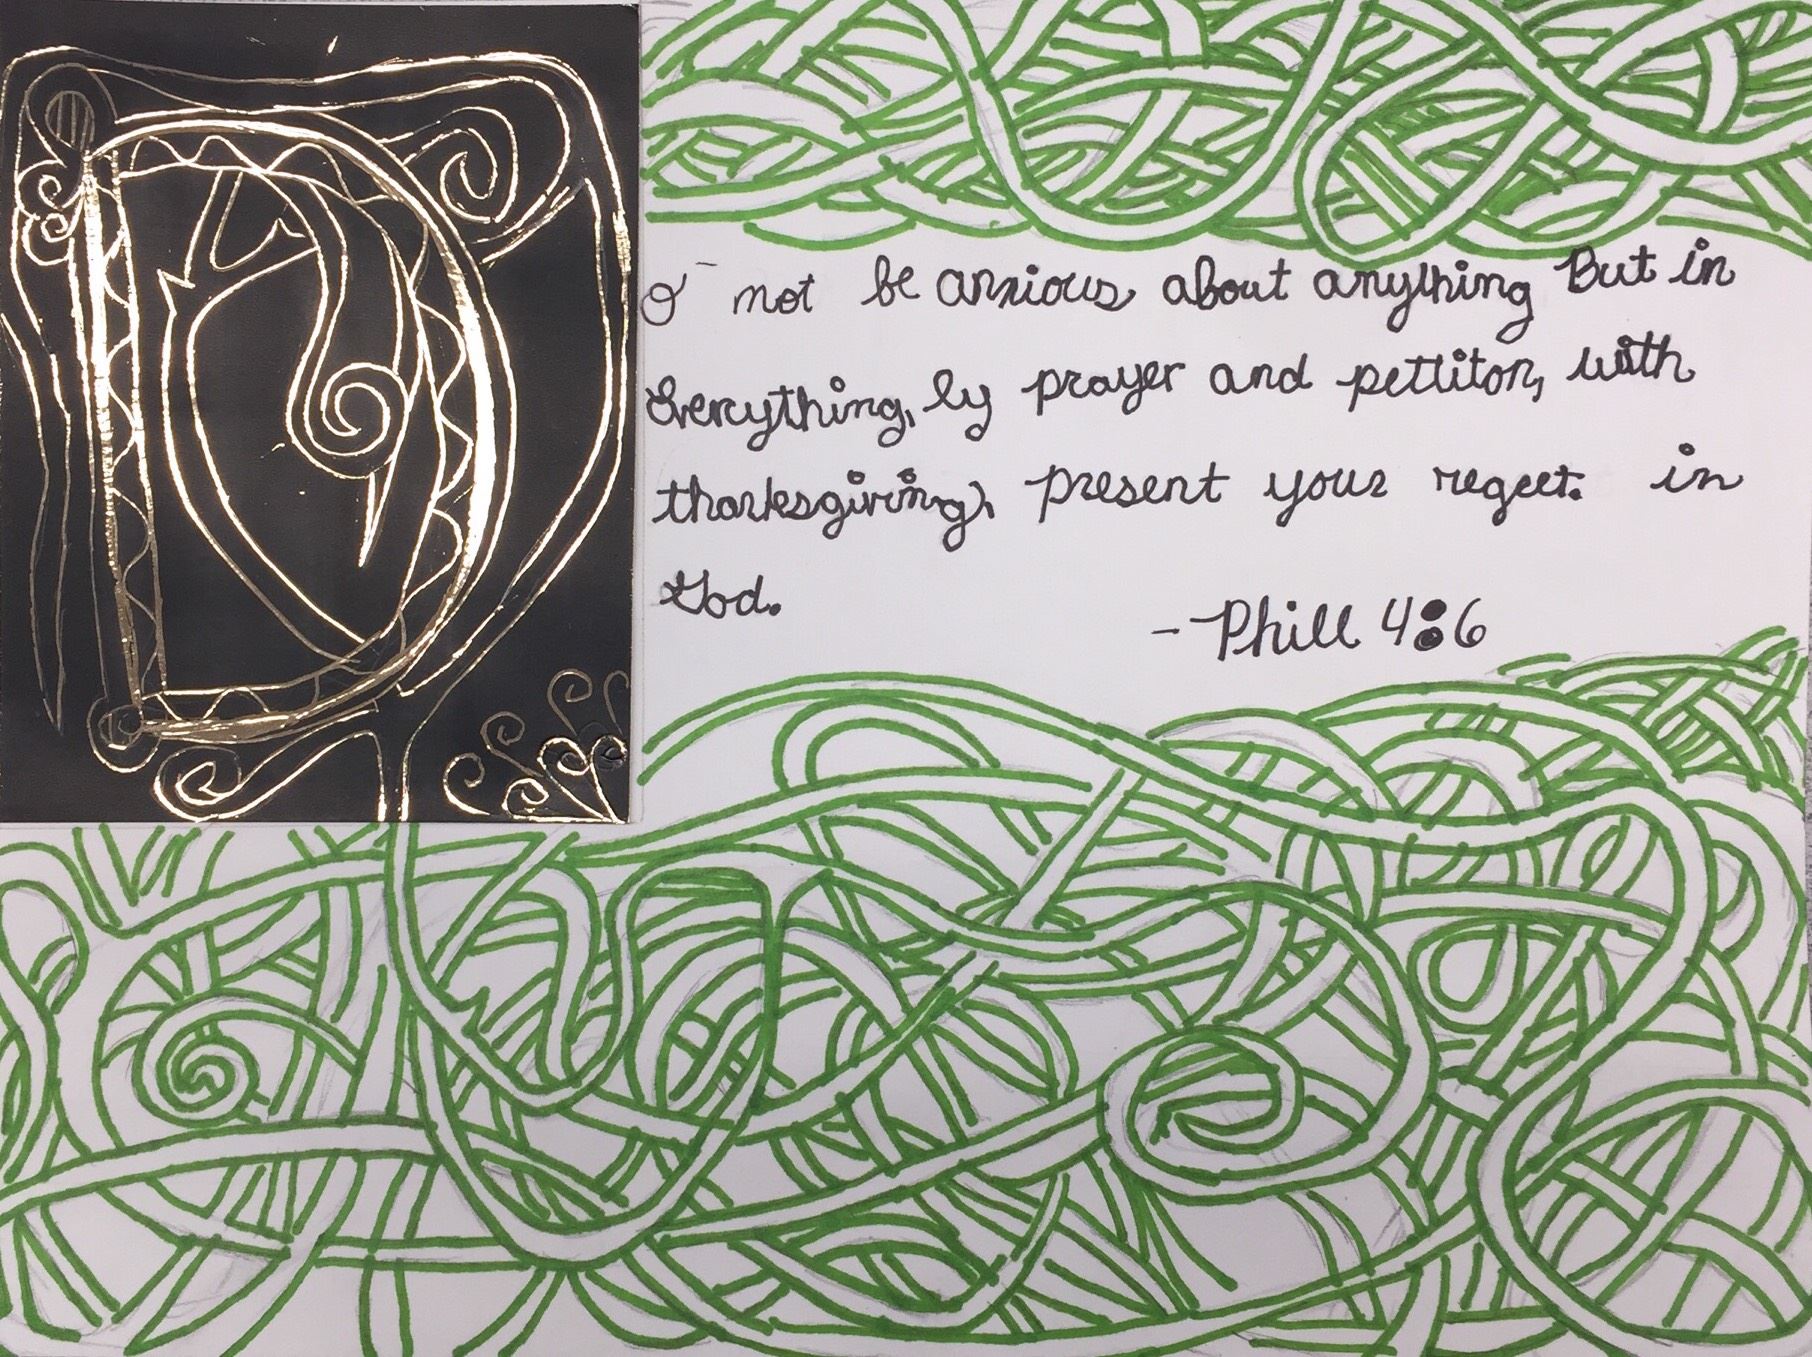 Do not be anxious about anything But in
Everything, by prayer and pettiton, with
thanksgiving, present your regect. in
God.
- Phill 4:6